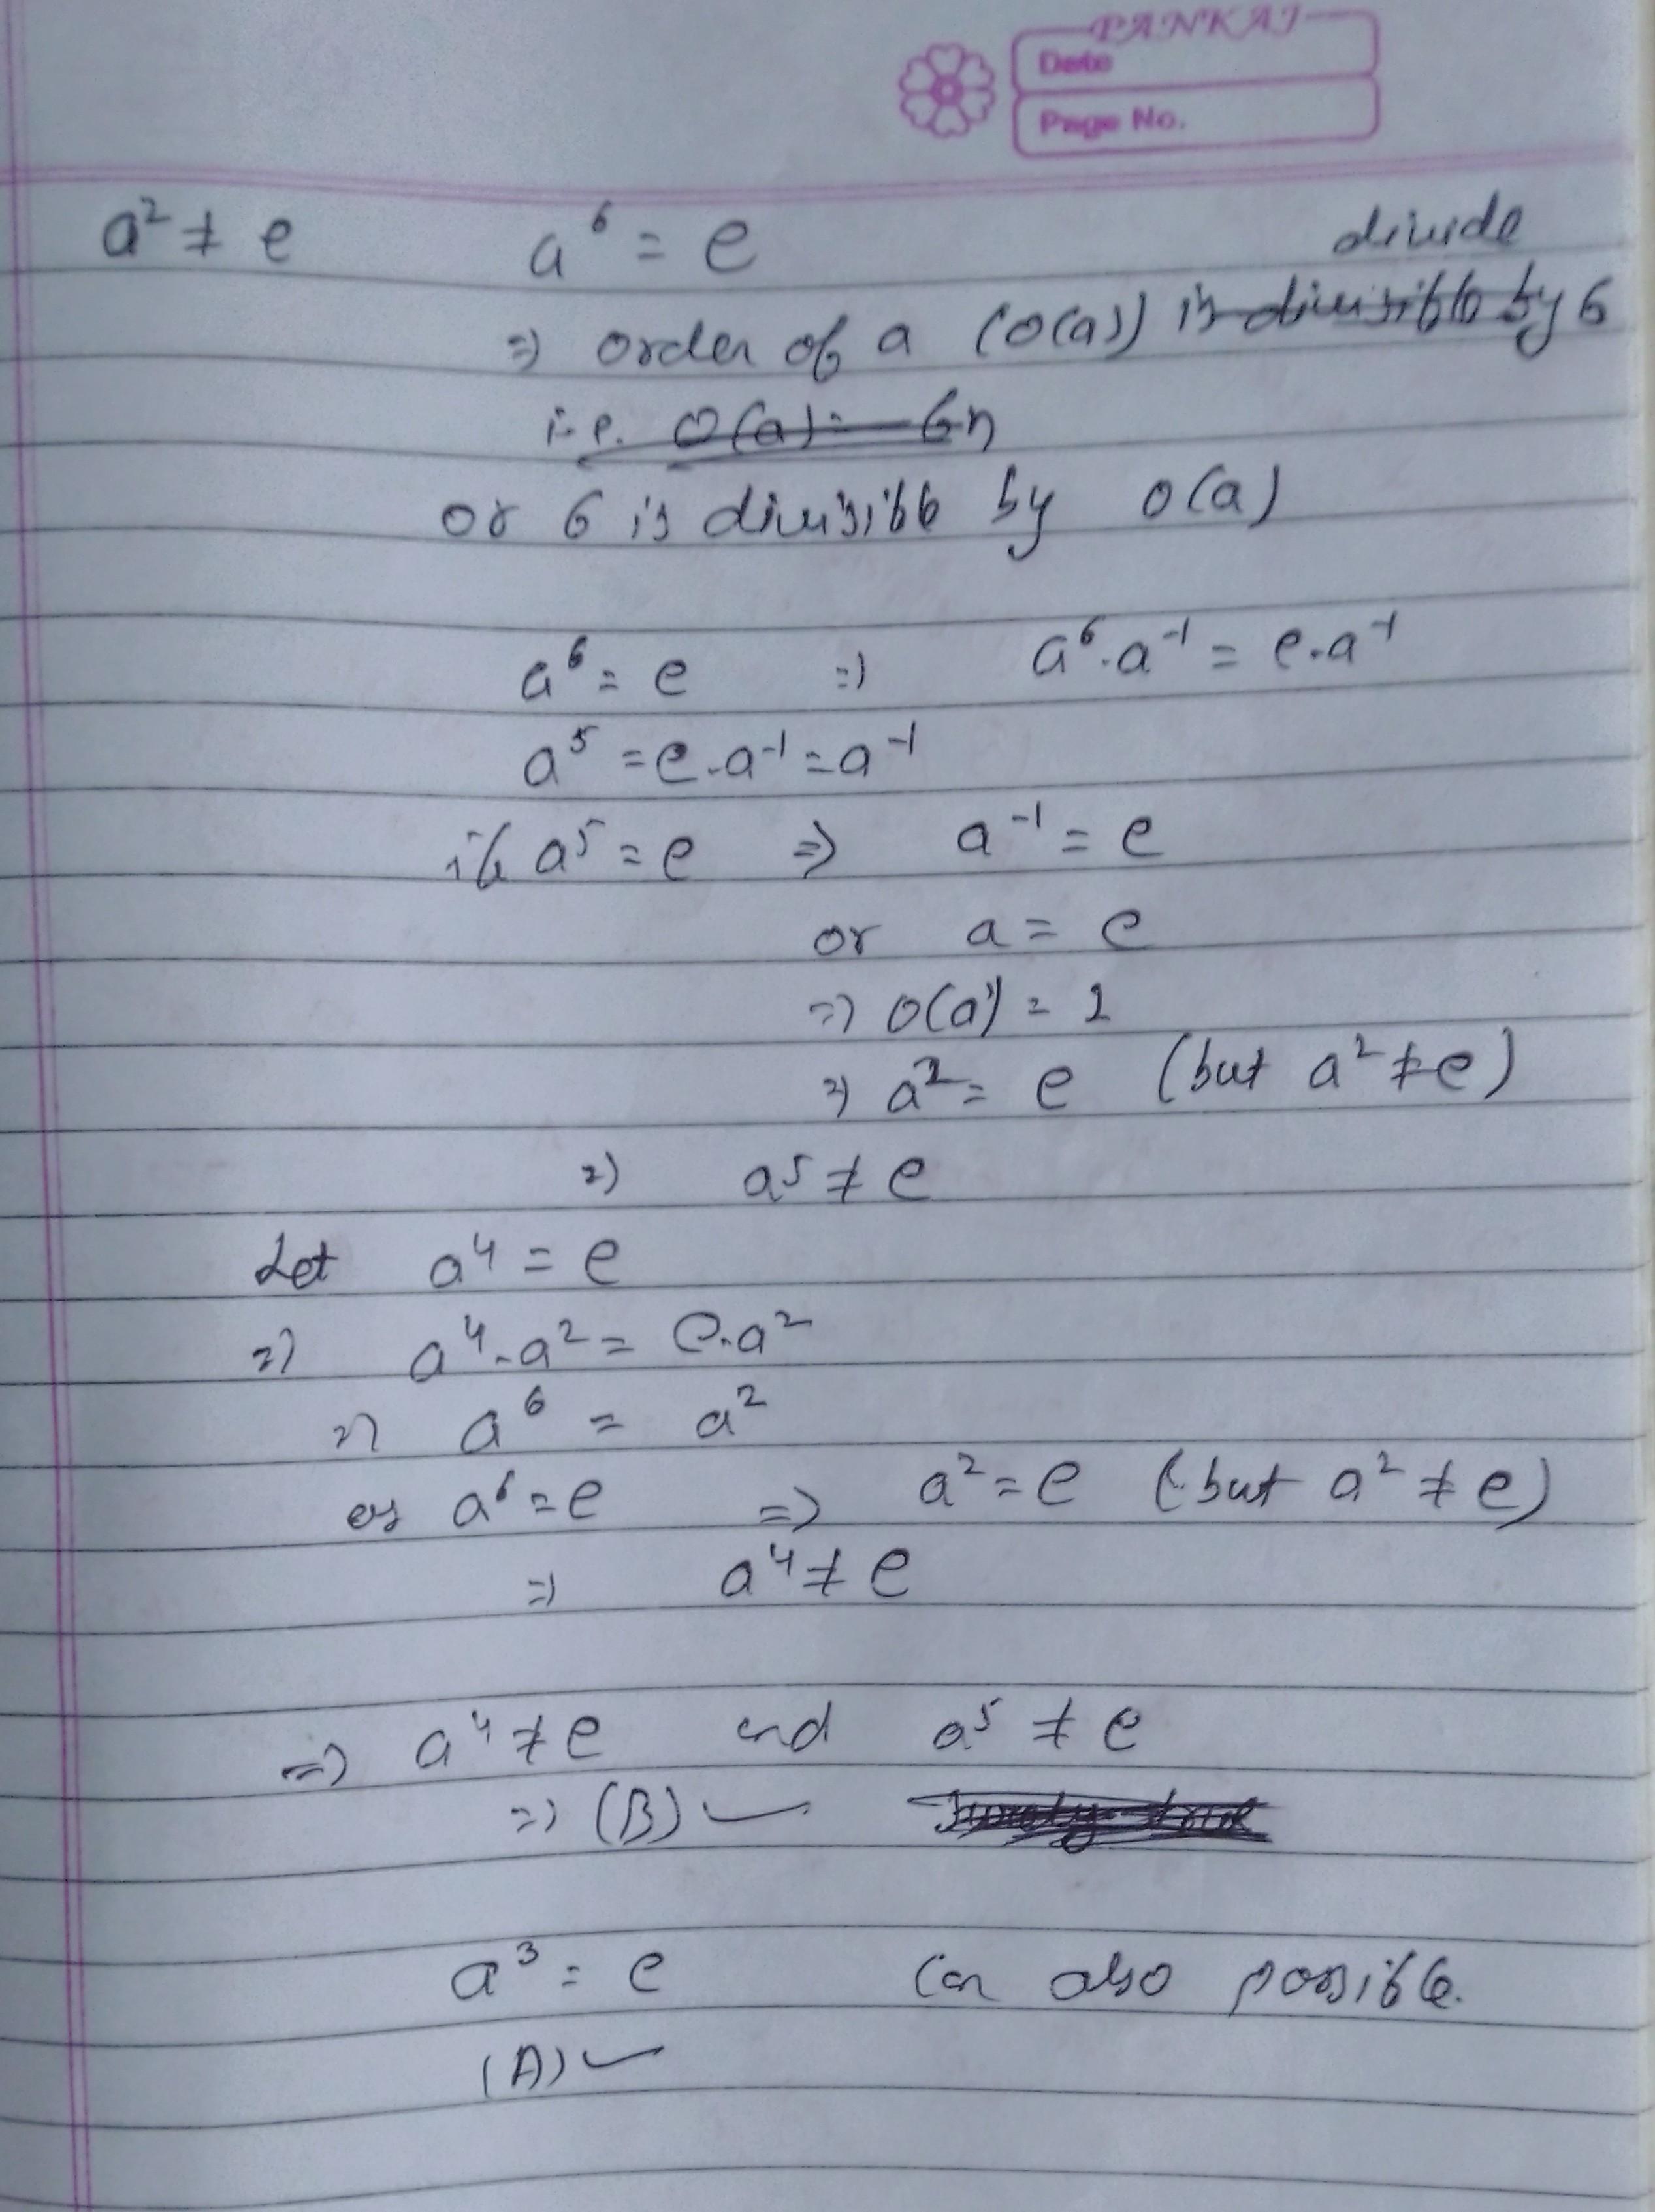 PANKAJ
Date
Page No.
a² ≠ e a⁶ = e divide
⇒ order of a (O(a)) is divisible by 6
i.e. O(a) = 6n
or 6 is divisible by O(a)
a⁶ = e ⇒ a⁶.a⁻¹ = e.a⁻¹
a⁵ = e.a⁻¹ = a⁻¹
if a⁵ = e ⇒ a⁻¹ = e
or a = e
⇒ O(a) = 1
⇒ a² = e (but a² ≠ e)
⇒ a⁵ ≠ e
Let a⁴ = e
⇒ a⁴.a² = e.a²
⇒ a⁶ = a²
as a⁶ = e ⇒ a² = e (but a² ≠ e)
⇒ a⁴ ≠ e
⇒ a⁴ ≠ e and a⁵ ≠ e
⇒ (B) ✓
a³ = e can also possible.
(A) ✓